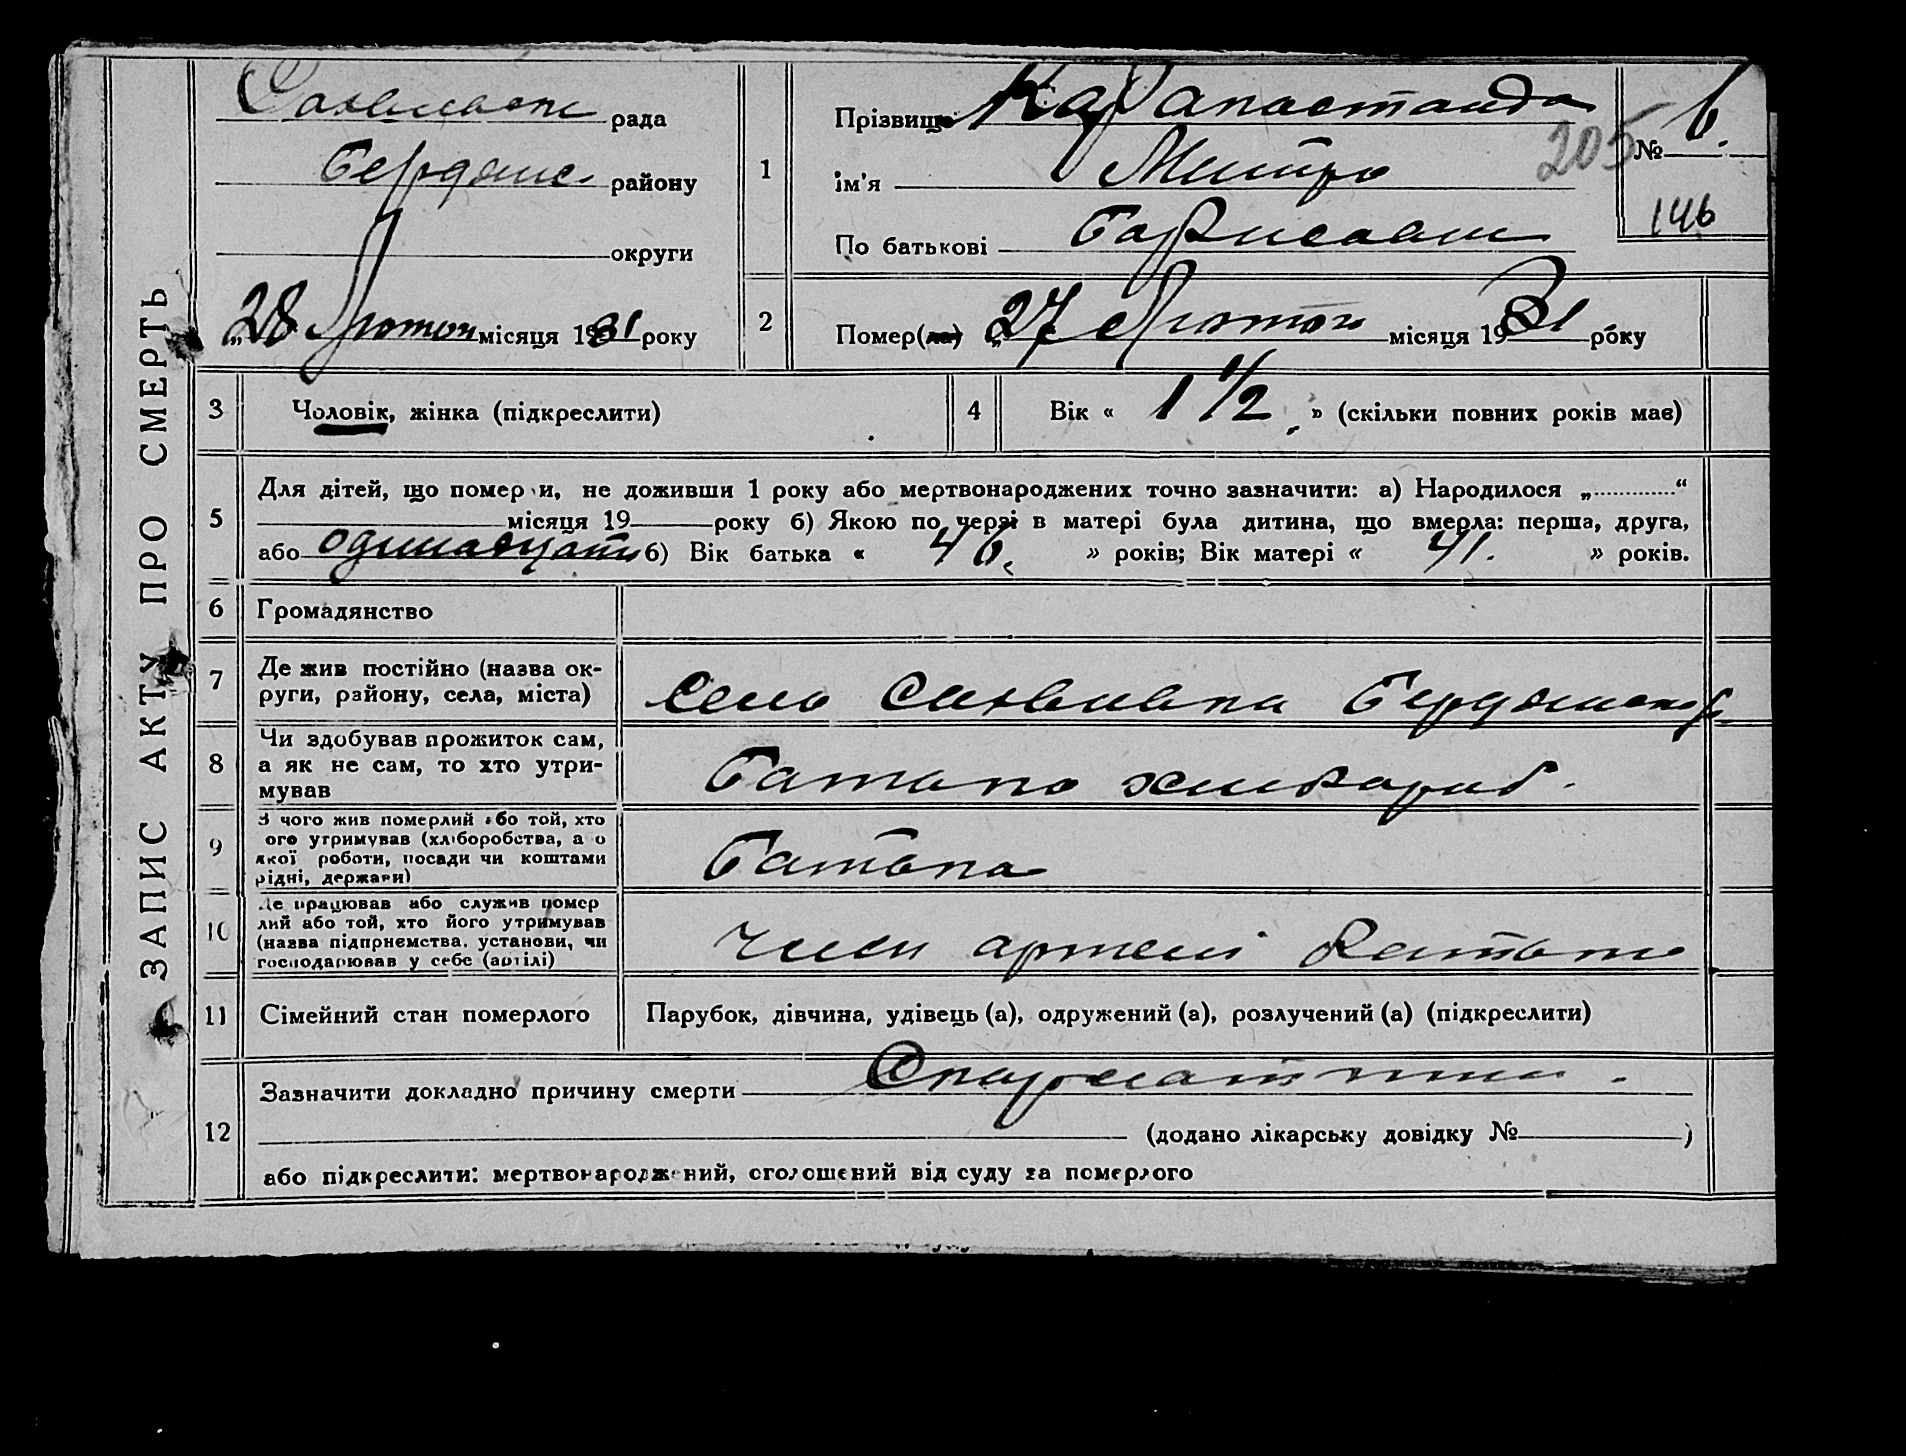 рада
Прізвище
№ 6.
205
району
1
ім'я Митро
146
округи
По батькові
„28 Лютого місяця 1931 року
2
Помер(ла) „27 Лютого місяця 1931 року
3 Чоловік, жінка (підкреслити)
4 Вік « 1 1/2 » (скільки повних років має)
Для дітей, що померли, не доживши 1 року або мертвонароджених точно зазначити: а) Народилося „ “
5 місяця 19 року б) Якою по черзі в матері була дитина, що вмерла: перша, друга,
або одинадцята б) Вік батька « 46. » років; Вік матері « 41. » років.
6 Громадянство
7 Де жив постійно (назва ок-
руги, району, села, міста)
Село
8 Чи здобував прожиток сам,
а як не сам, то хто утри-
мував
Батько
9 З чого жив померлий або той, хто
ого утримував (хліборобства, а о
якої роботи, посади чи коштами
рідні, держави)
Батька
10 Де працював або служив помер
лий або той, хто його утримував
(назва підприємства, установи, чи
господарював у себе (артілі)
член артелі
11 Сімейний стан померлого
Парубок, дівчина, удівець (а), одружений (а), розлучений (а) (підкреслити)
Зазначити докладно причину смерти
12 (додано лікарську довідку № )
або підкреслити: мертвонароджений, оголошений від суду за померлого
ЗАПИС АКТУ ПРО СМЕРТЬ